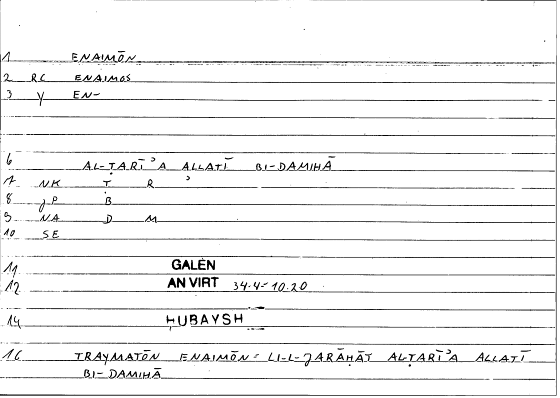 1 ENAIMŌN
2 RC ENAIMOS
3 Y EN-
6 AL-ṬARĪʾA ALLATĪ BI-DAMIHĀ
7 NK Ṭ R ʾ
8 JP B
9 NA D M
10 SE
11 GALEN
12 AN VIRT 34.4-10.20
14 HUBAYSH
16 TRAYMATŌN ENAIMŌN = LI-L-JARĀḤĀT ALṬARĪʾA ALLATĪ
BI-DAMIHĀ